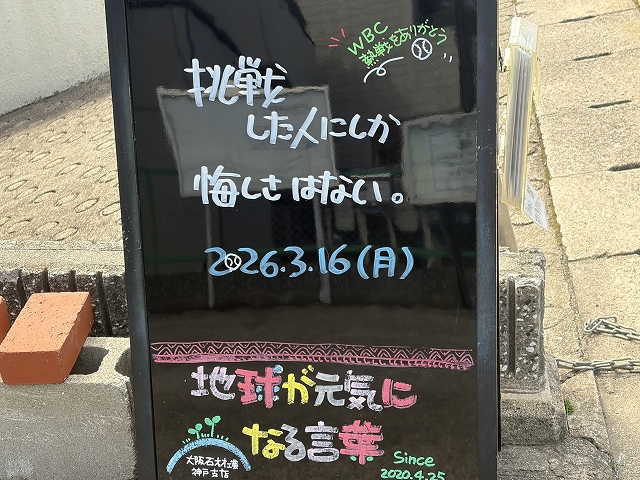 WBC
熱戦をありがとう
挑戦
した人にしか
悔しさはない。
2026.3.16(月)
地球が元気に
なる言葉
大阪石材工業
神戸支店
Since
2020.4.25